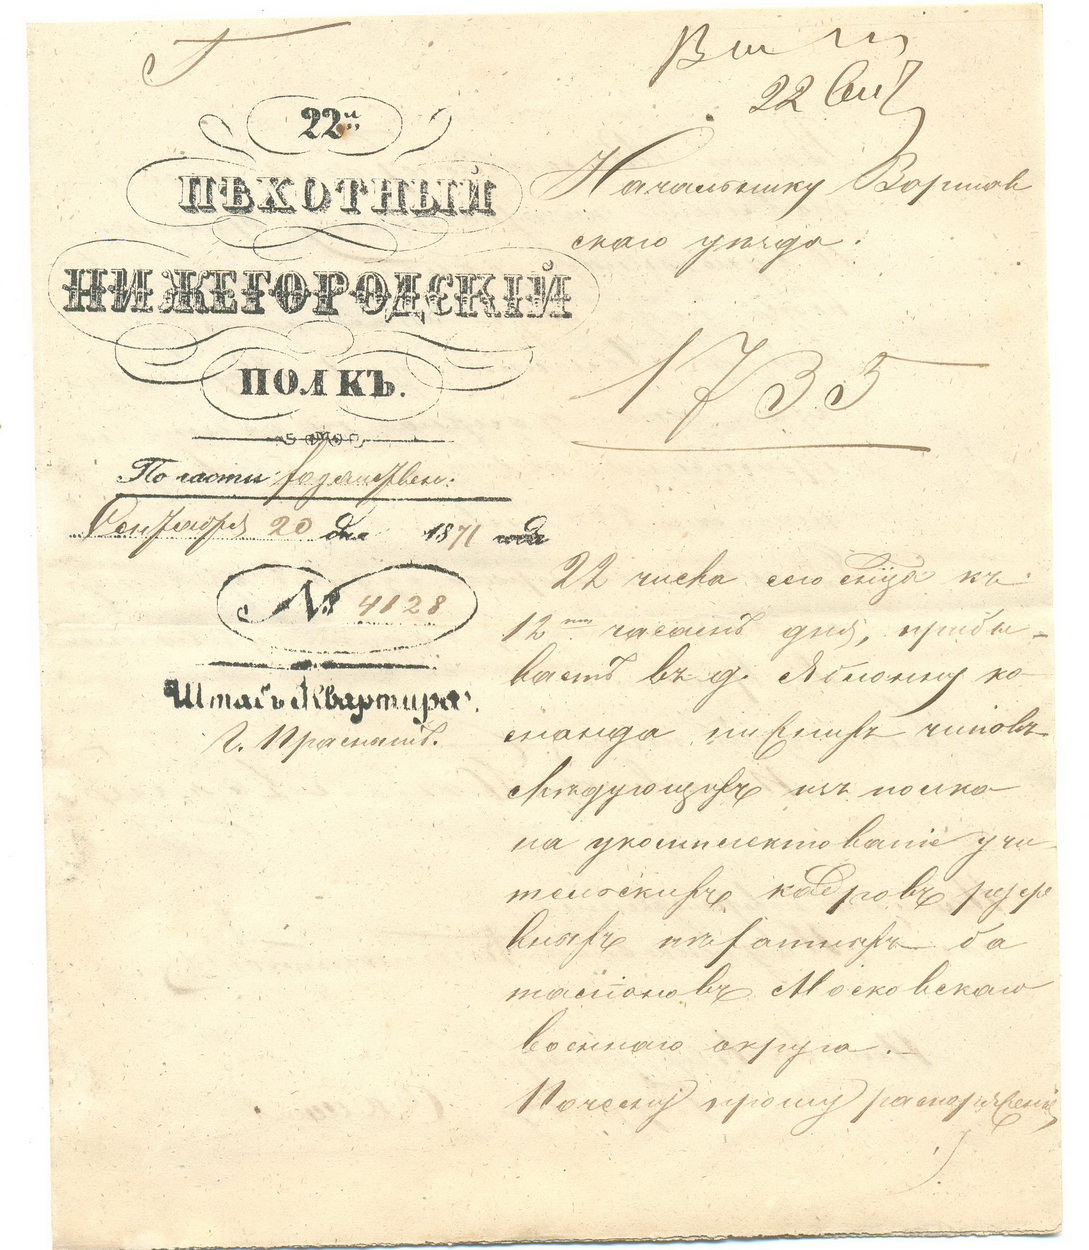 22 Сент
22й
ПѢХОТНЫЙ
НИЖЕГОРОДСКІЙ
ПОЛКЪ.
По части хозяйствен.
Сентября 20 дня 1871 года
№ 4128
Штабъ Квартира:
г. Праснашъ.
Начальнику Варшав
скаго уѣзда.
1735
22 числа сего м҃ца къ
12ти часамъ дня, прибы-
ваетъ въ д. Яблонну ко-
манда нижнихъ чиновъ
слѣдующихъ изъ полка
на укомплектованіе учи-
тельскихъ кадровъ резер
вныхъ пѣхотныхъ ба
таліоновъ Московскаго
военнаго округа.
Почему прошу распоряженія